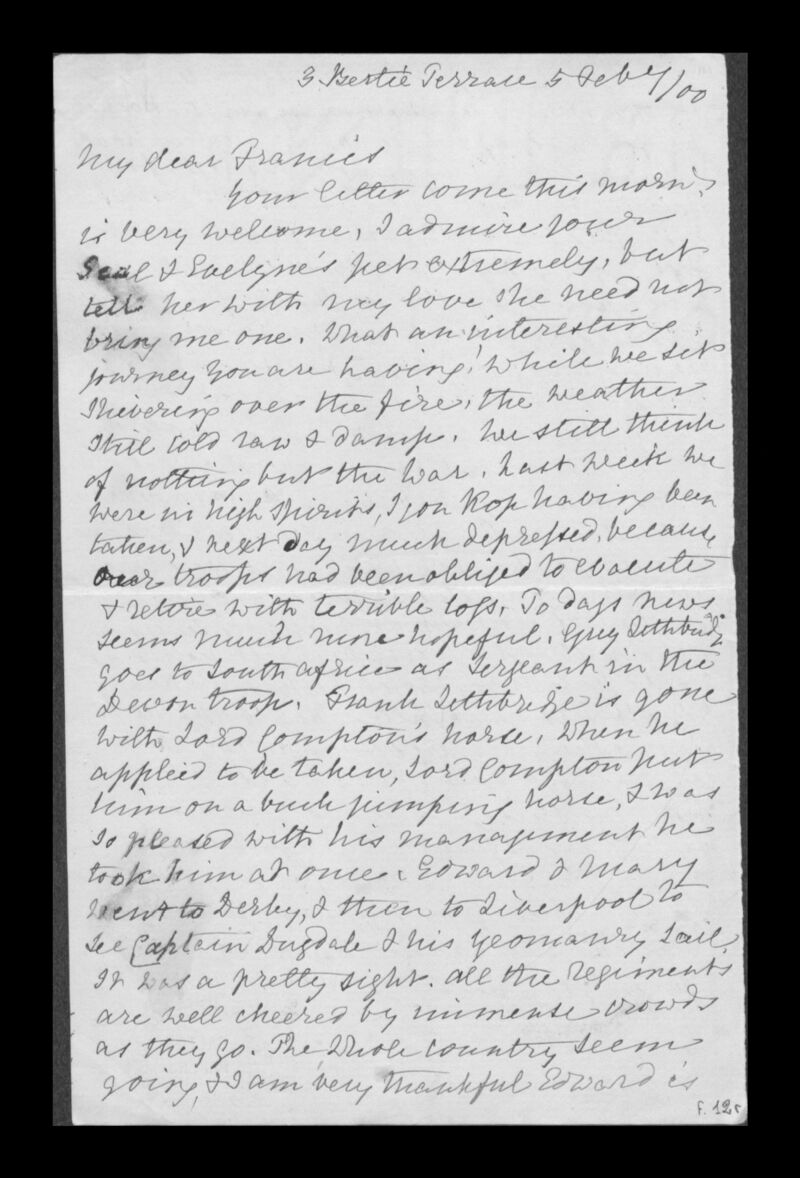 3 Bertie Terrace 5 Feby/00
My dear Francis
Your letter come this morn:
is very welcome, I admire your
Seal & Evelyne's pet extremely, but
tell her with my love she need not
bring me one. What an interesting
journey you are having! while we sit
shivering over the fire, the weather
still cold raw & damp. We still think
of nothing but the War. Last week we
were in high spirits, Spion Kop having been
taken, & next day much depressed, because
our troops had been obliged to evacuate
& retire with terrible loss. To days news
seems much more hopeful. Guy Lethbridge
goes to South Africa as Sergeant in the
Devon troop. Frank Lethbridge is gone
with Lord Compton's horse. When he
applied to be taken, Lord Compton put
him on a buck jumping horse, & was
so pleased with his management he
took him at once. Edward & Mary
went to Derby, & then to Liverpool to
see Captain Dugdale & his yeomanry sail.
It was a pretty sight. All the regiments
are well cheered by immense crowds
as they go. The Whole country seem
going, & I am very thankful Edward is
f. 12r